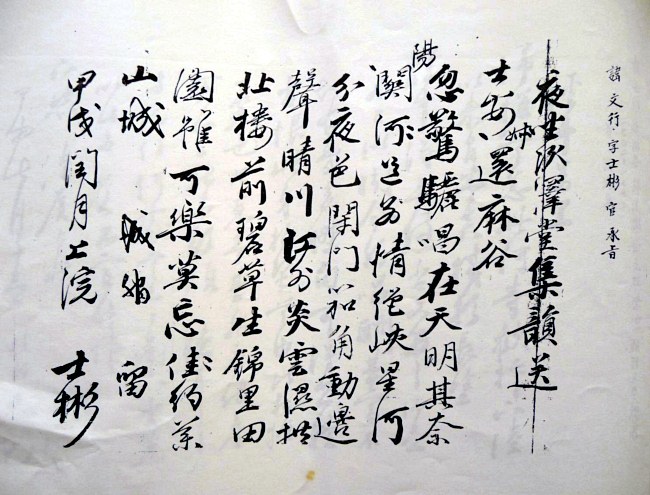 諱 文行 字士彬 官 承旨
夜坐次澤堂集韻送
士安還麻谷
忽驚驪唱在天明其奈
陽關情絶峽星河
分夜色閉門笳角動邊
聲晴川外炎雲濕拱
北樓前碧草生錦里田
園雖可樂莫忘佳約
山城 城 留
甲戌閏月上浣 士彬